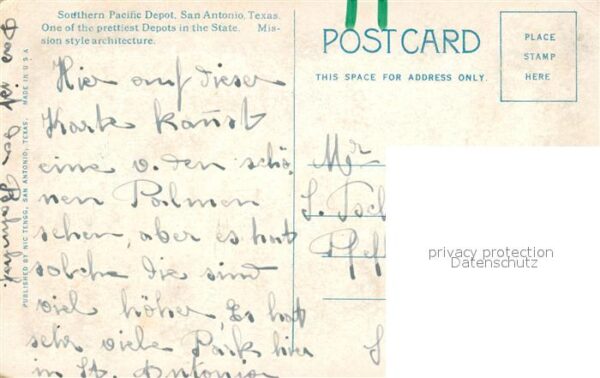 Southern Pacific Depot, San Antonio, Texas.
One of the prettiest Depots in the State. Mis-
sion style architecture.
Hier auf dieser
Karte kannst
eine v. den schö-
nen Palmen
sehen, aber es hat
solche die sind
viel höher, Es hat
sehr viele Park hier
in St. Antonio
Das ist der Bahnhof.
PUBLISHED BY NIC TENGG, SAN ANTONIO, TEXAS. MADE IN U S A
POST CARD
THIS SPACE FOR ADDRESS ONLY.
PLACE
STAMP
HERE
Mr
S. Tsch
Pfeff
S
privacy protection
Datenschutz